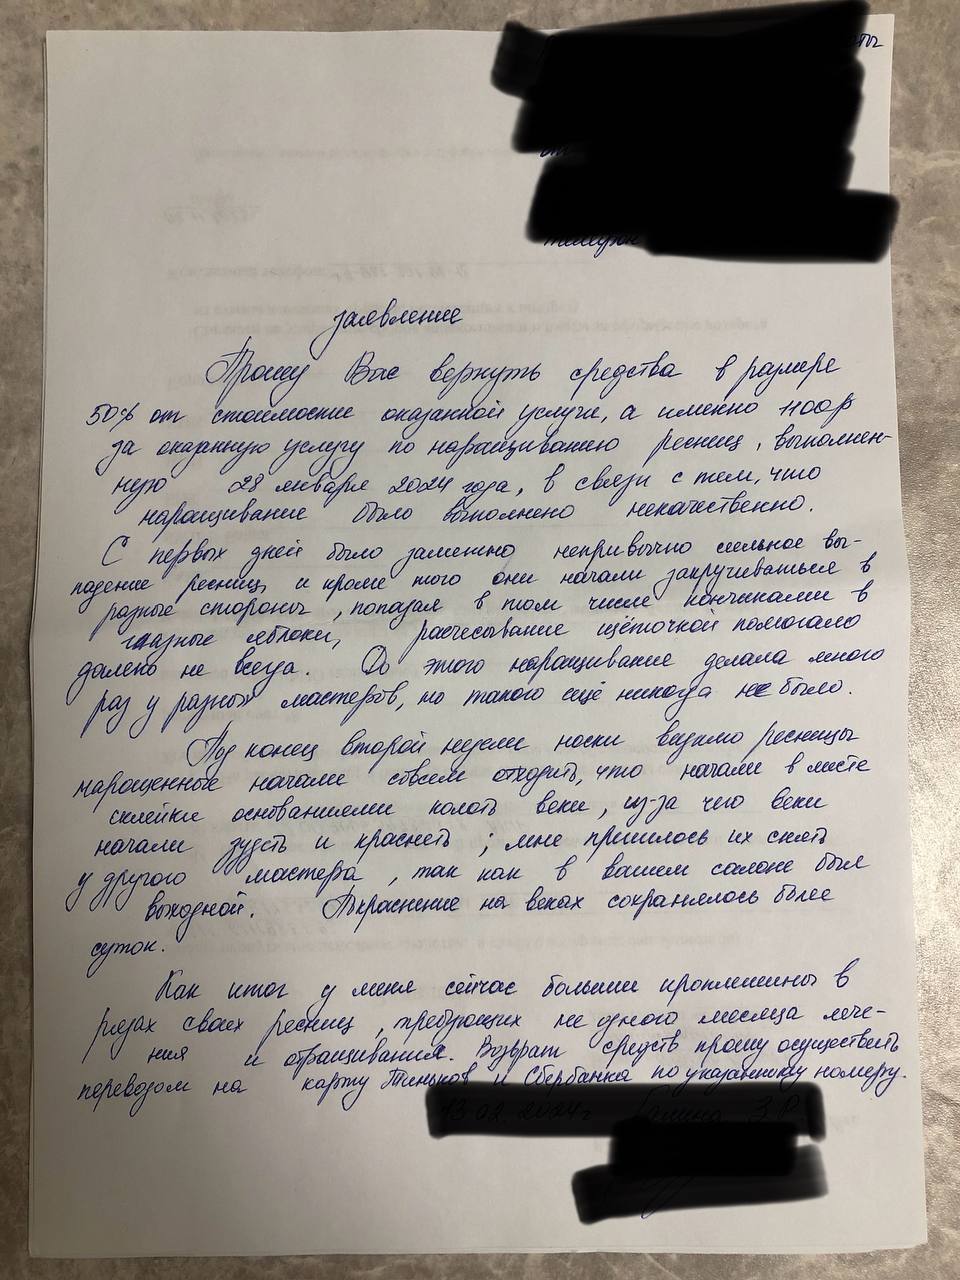 от
телефон
заявление
Прошу Вас вернуть средства в размере
50% от стоимости оказанной услуги, а именно 1100₽
за оказанную услугу по наращиванию ресниц, выполнен-
ную 28 января 2024 года, в связи с тем, что
наращивание было выполнено некачественно.
С первых дней было заметно непривычно сильное вы-
падение ресниц, и кроме того они начали закручиваться в
разные стороны, попадая в том числе кончиками в
глазные яблоки, расчесывание щёточкой помогало
далеко не всегда. До этого наращивание делала много
раз у разных мастеров, но такого ещё никогда не было.
Под конец второй недели носки видимо ресницы
наращенные начали совсем отходить, что начали в месте
склейки основаниями колоть веки, из-за чего веки
начали зудеть и краснеть; мне пришлось их снять
у другого мастера, так как в вашем салоне был
выходной. Покраснение на веках сохранялось более
суток.
Как итог у меня сейчас большие проплешины в
рядах своих ресниц, требующих не одного месяца лече-
ния и отращивания. Возврат средств прошу осуществить
переводом на карту Тиньков и Сбербанка по указанному номеру.